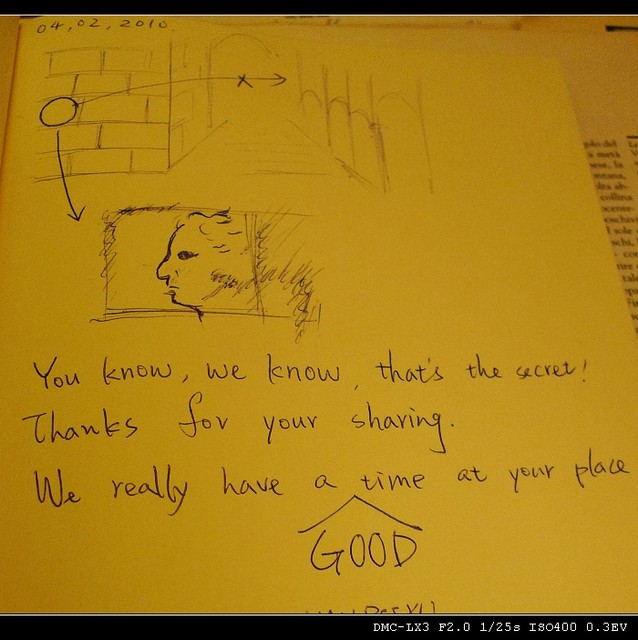 04,02,2010
You know, we know, that's the secret!
Thanks for your sharing.
We really have a time at your place
GOOD
DMC-LX3 F2.0 1/25s ISO400 0.3EV